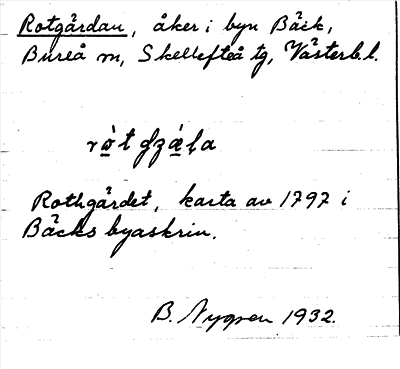 Rotgärdan, åker i byn Bäck,
Bureå sn, Skellefteå tg, Västerb.l.
Rothgärdet, karta av 1797 i
Bäcks byaskrin.
B. Nygren 1932.